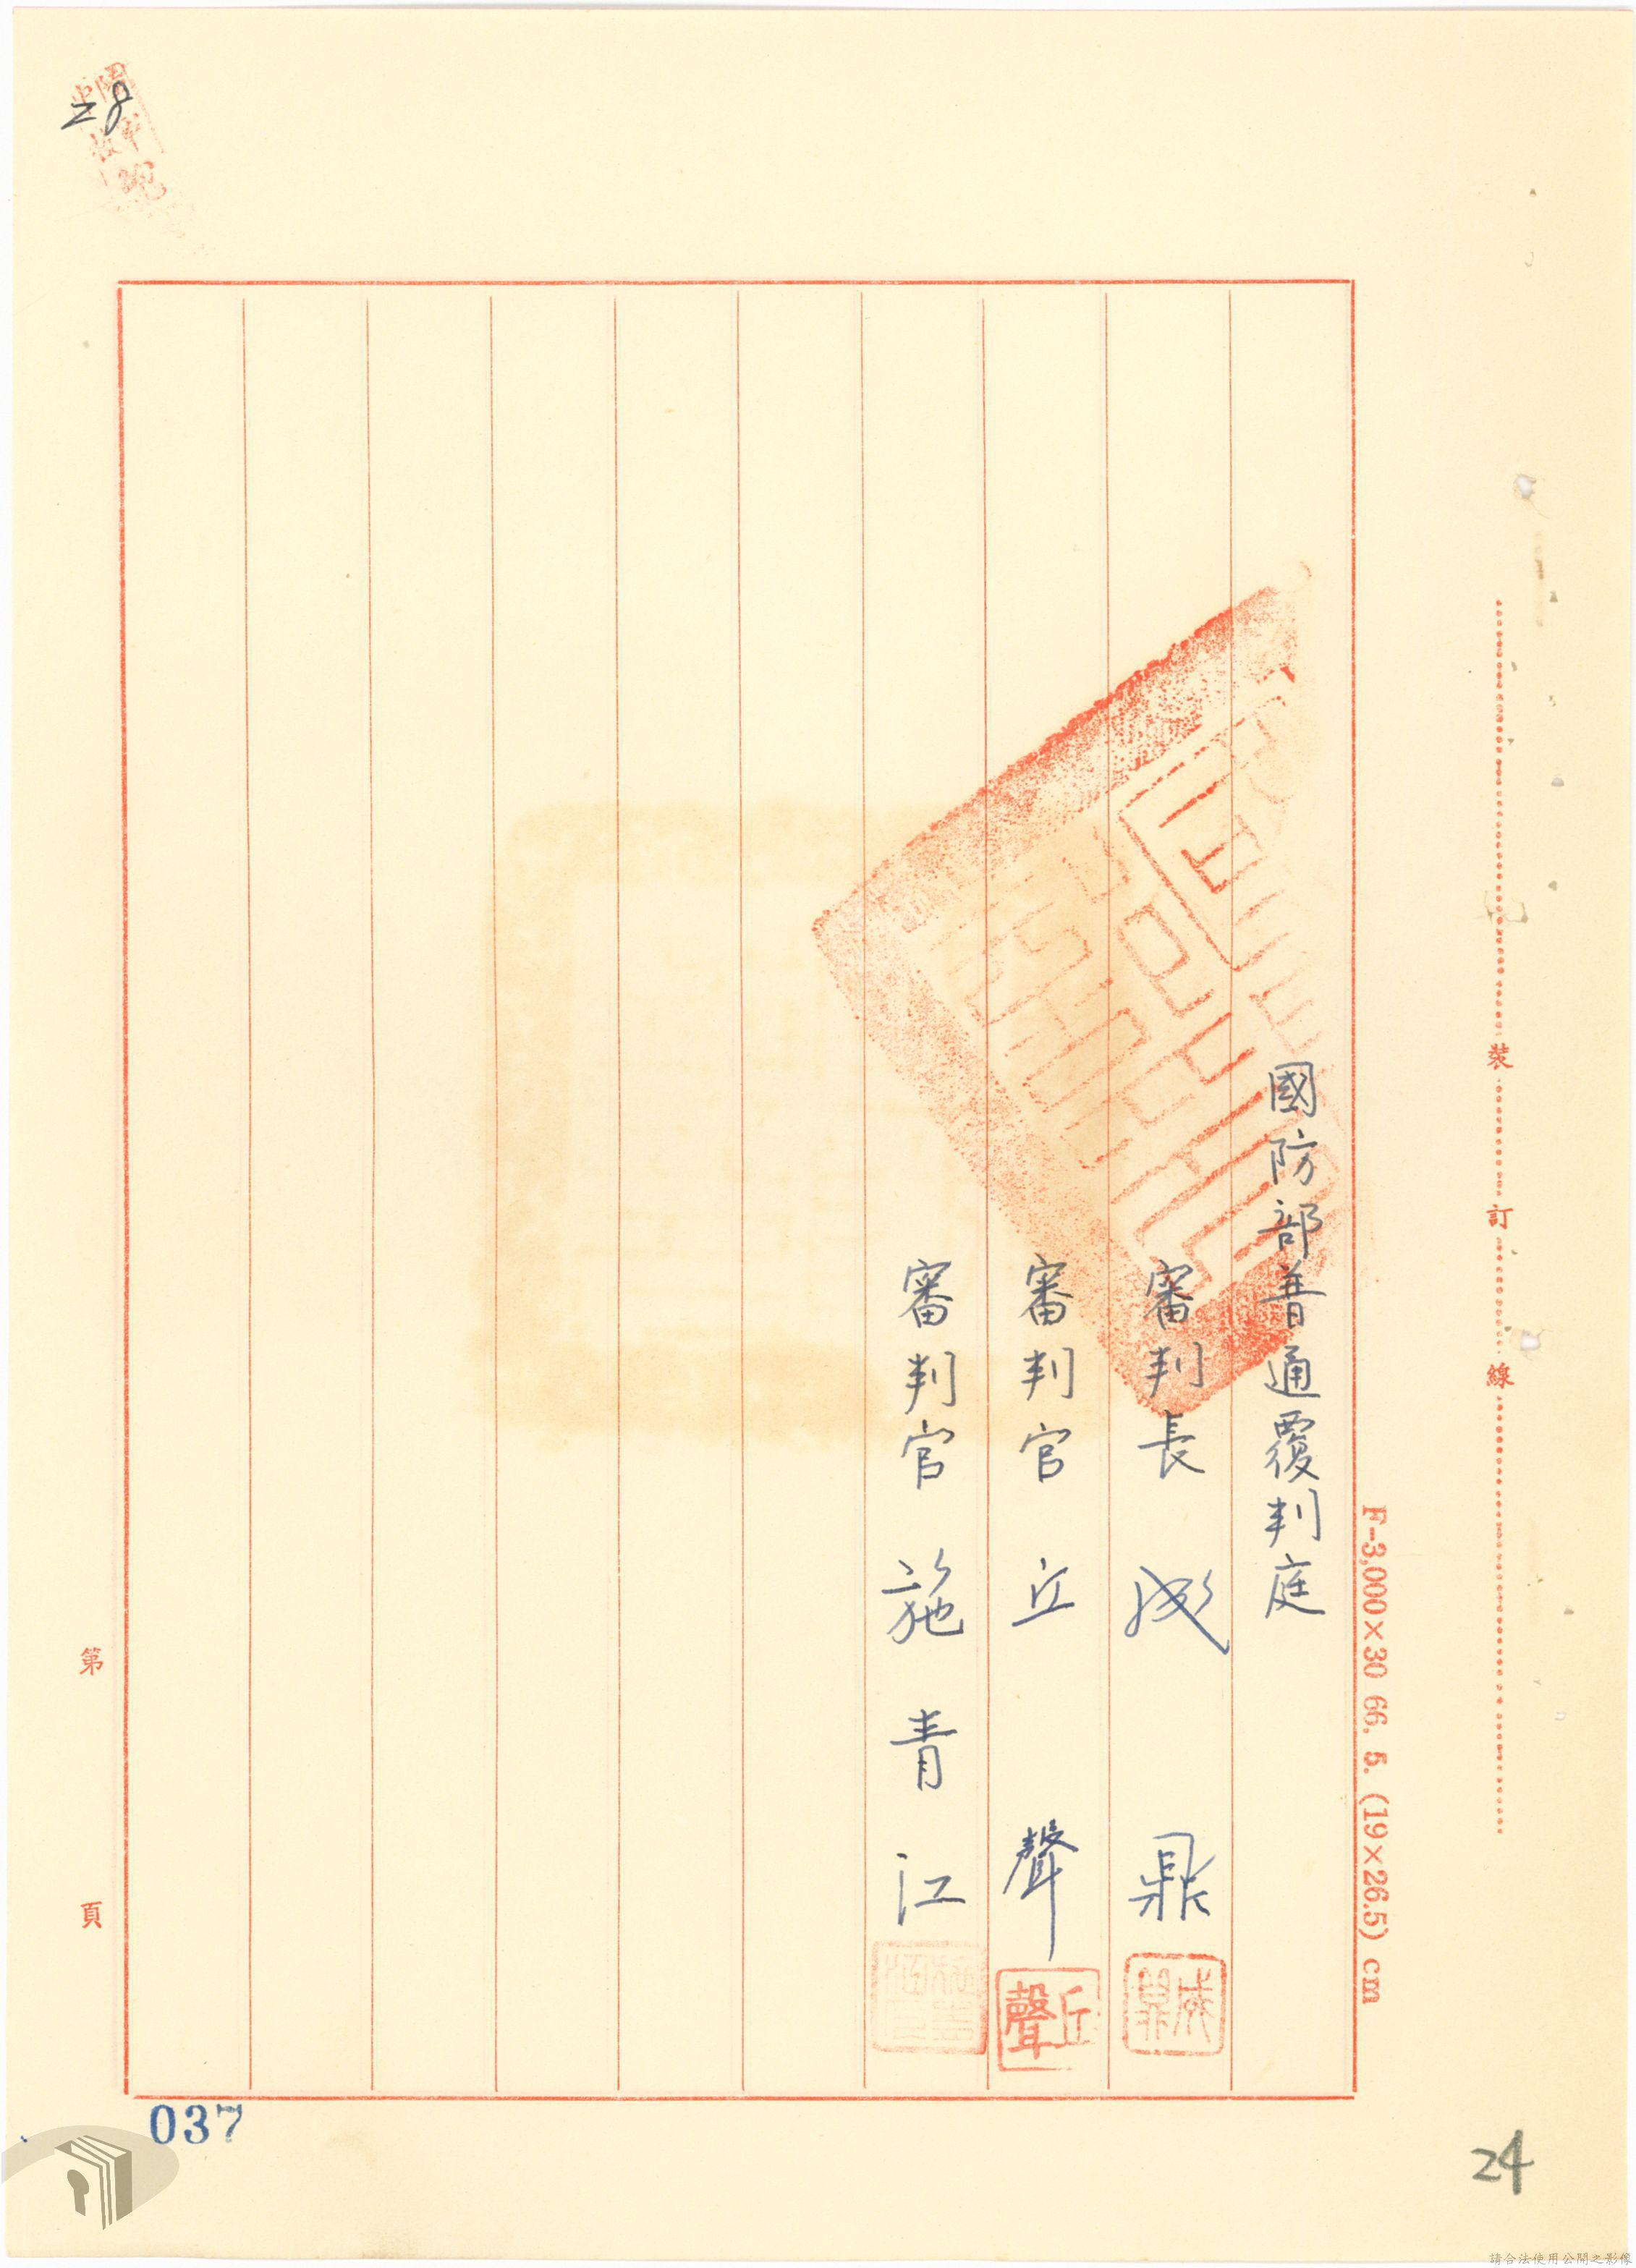 28
裝訂線
F-3,000×30 66. 5. (19×26.5) cm
國防部普通覆判庭
審判長 成 鼎
審判官 丘 聲
丘聲
審判官 施青江
第 頁
037
24
請合法使用公開之影像